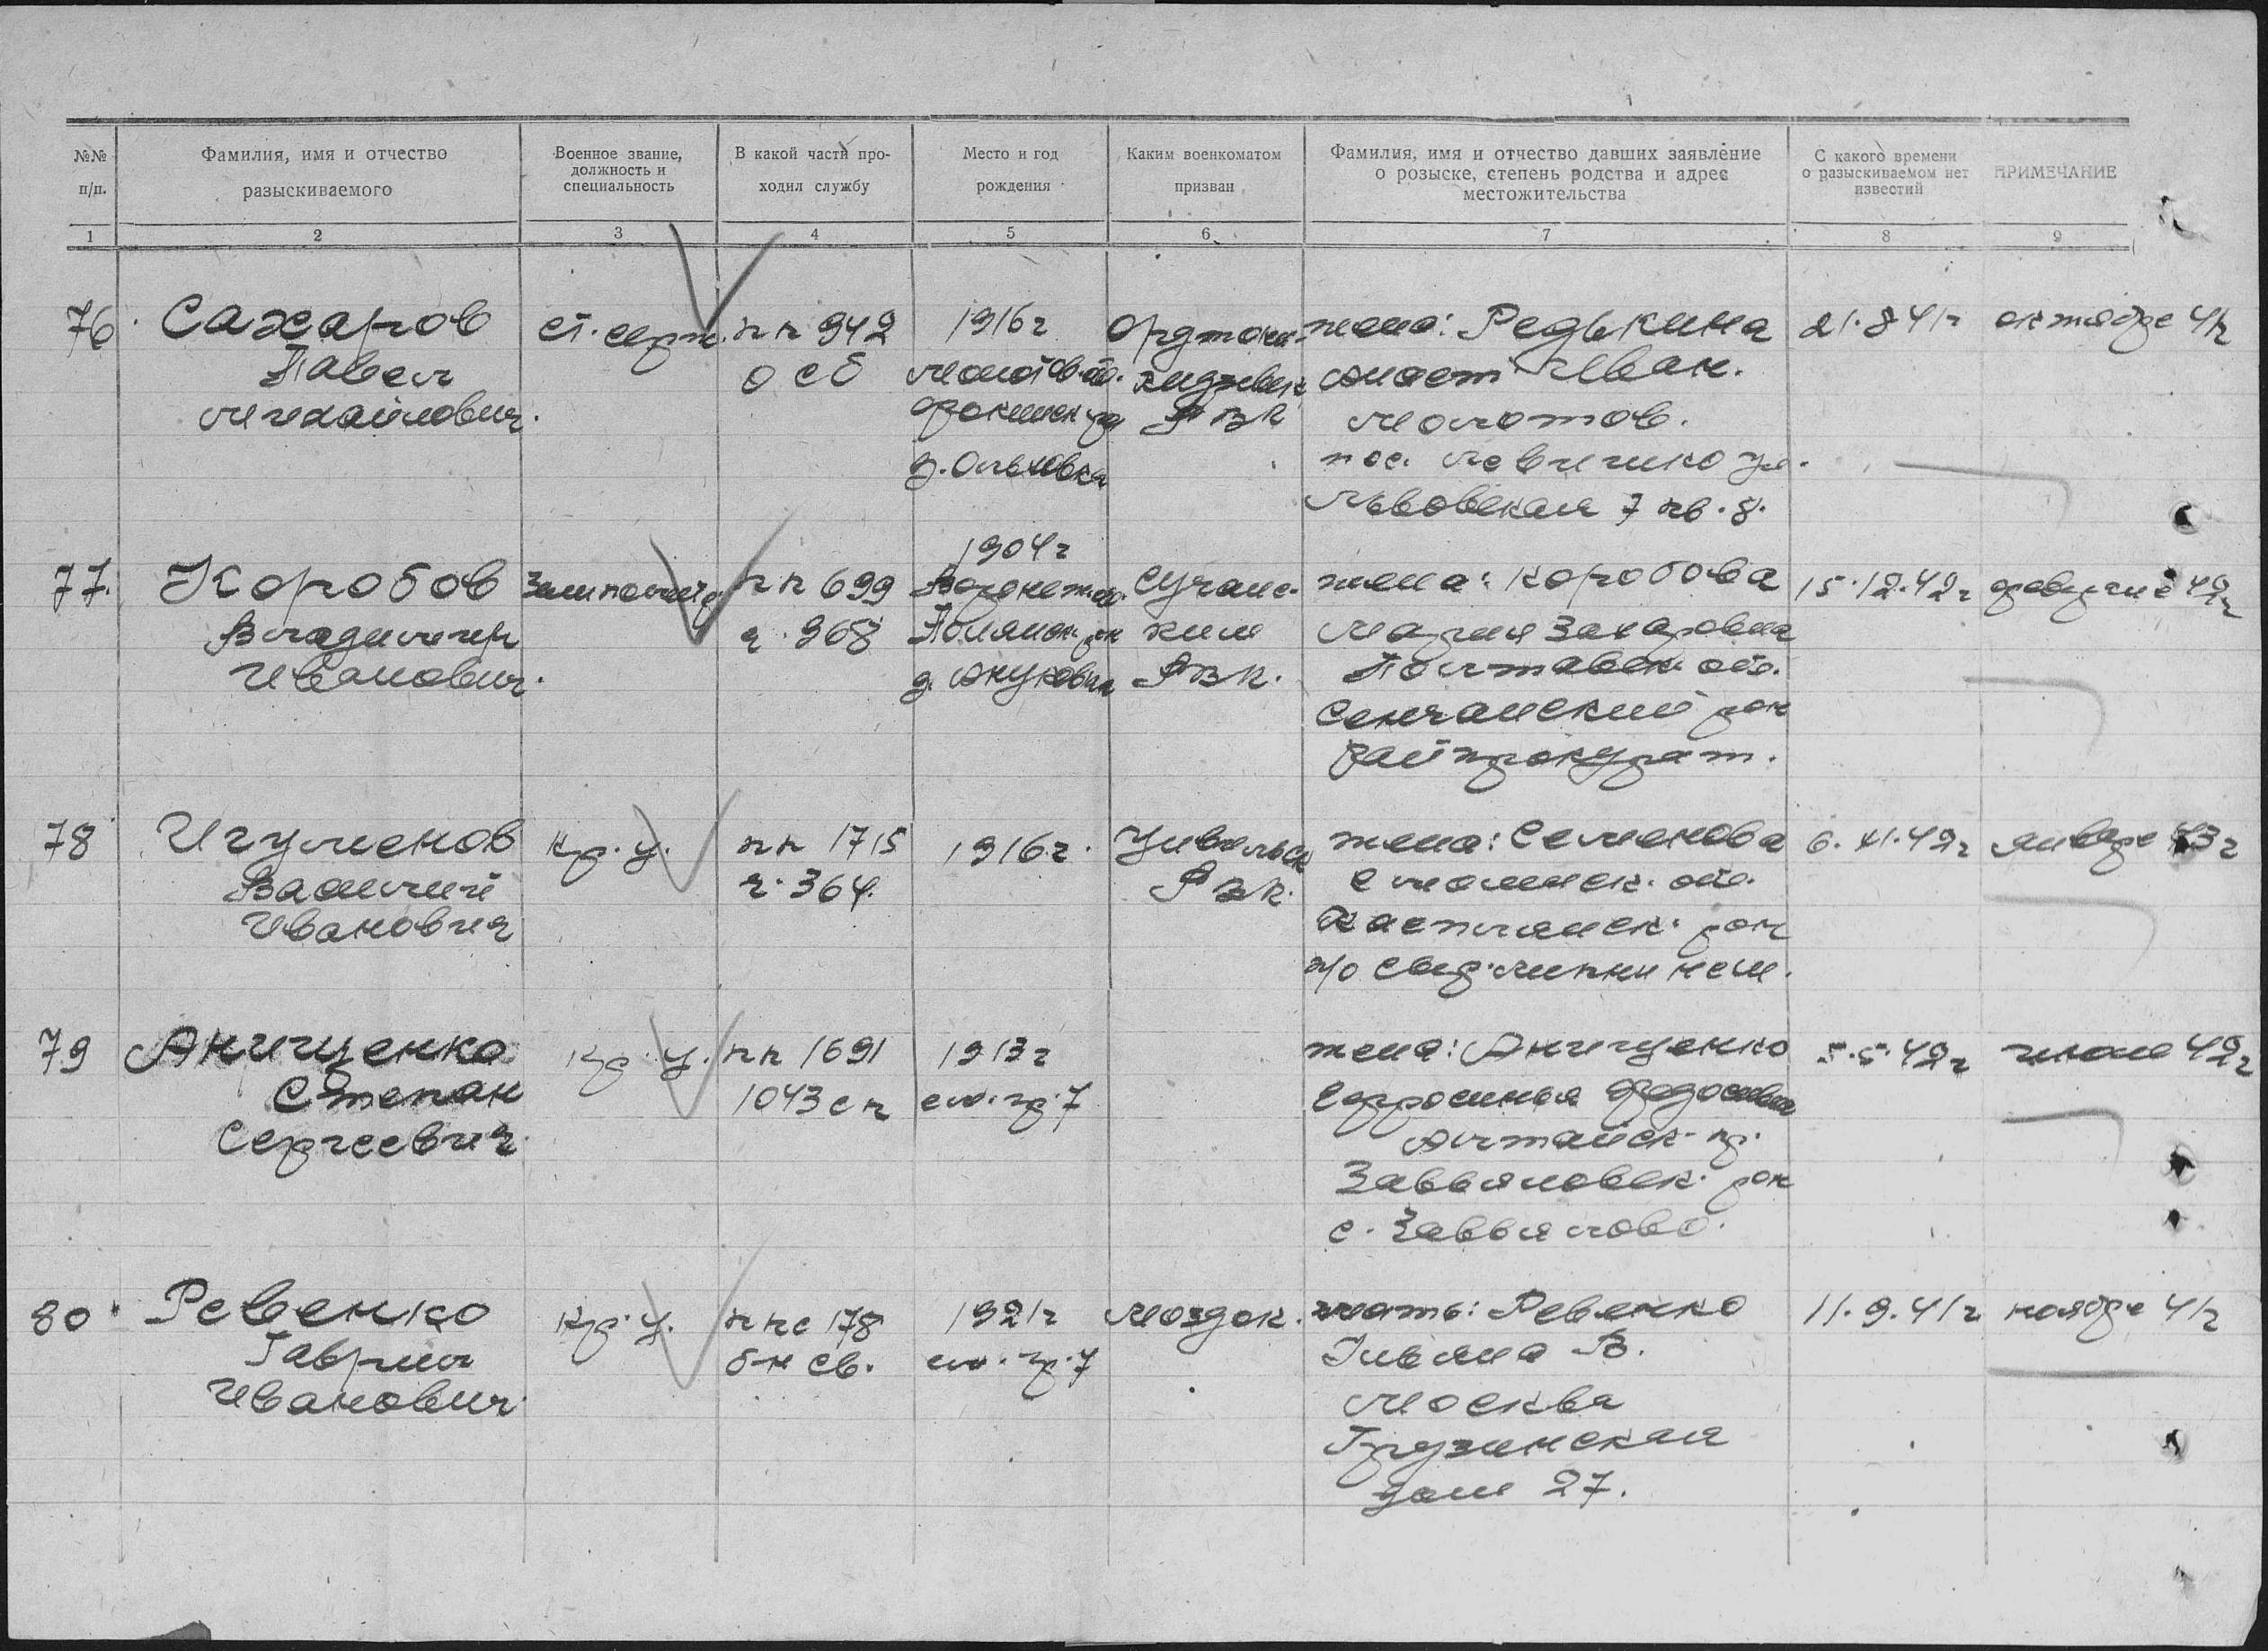 №№ п/п.
Фамилия, имя и отчество разыскиваемого
Военное звание, должность и специальность
В какой части проходил службу
Место и год рождения
Каким военкоматом призван
Фамилия, имя и отчество давших заявление о розыске, степень родства и адрес местожительства
С какого времени о разыскиваемом нет известий
ПРИМЕЧАНИЕ
1 2 3 4 5 6 7 8 9
76. Сахаров
Павел
Михайлович.
ст. серж.
пп 942
осб
1916 г
Молотов. об.
д. Ольховка
Орджони-
кидзевск
РВК
жена: Редькина
Анаст Иван.
Молотов.
пос. Левшино ул.
Львовская 7 кв. 8.
21.8 41 г
октябре 41 г
77. Коробов
Владимир
Иванович.
пп 699
ч. 968
1904 г
Воронеж. об.
Сучанс-
ким
РВК.
жена: Коробова
Мария Захаровна
Полтавск. об.
Сенчанский рон
райпрокурат.
15.12.42 г
78 Игуменов
Василий
Иванович
кр. у.
пп 1715
ч. 364.
1916 г.
Цивильск
РВК.
жена: Семенова
Смоленск. об.
Касплянск. рон
6.XI.42 г
январе 43 г
79 Анищенко
Степан
Сергеевич.
кр. у.
пп 1691
1043 сп
1913 г
см. гр. 7
жена: Анищенко
Алтайск. кр.
Завьяловск. рон
с. Завьялово.
5.5.42 г
июле 42 г
80 Ревенко
Гаврил
Иванович.
кр. у.
ппс 178
б-н св.
1921 г
см. гр. 7
Моздок.
мать: Ревенко
Ульяна В.
Москва
Грузинская
дом 27.
11.9.41 г
ноябре 41 г